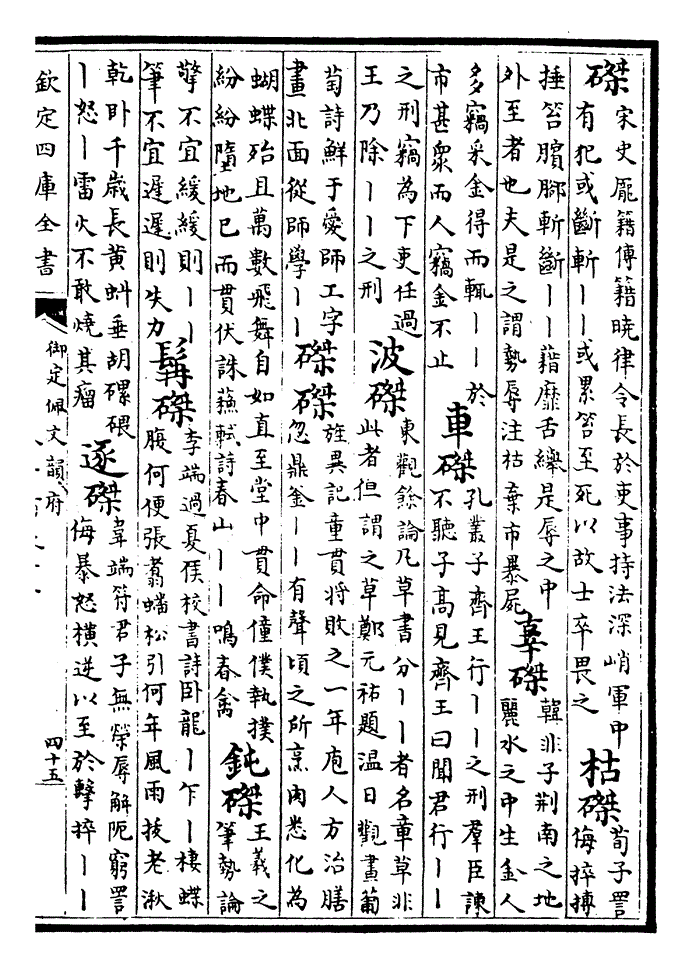 磔宋史龎籍傳籍曉律令長於吏事持法深峭軍中有犯或斷斬丨丨或累笞至死以故士卒畏之 枯磔荀子詈侮捽搏
捶笞臏腳斬斷丨丨藉靡舌纏是辱之中外至者也夫是之謂勢辱注枯棄市暴屍 辜磔韓非子荆南之地麗水之中生金人
多竊采金得而輒丨丨於市甚衆而人竊金不止 車磔孔叢子齊王行丨丨之刑羣臣諫不聽子高見齊王曰聞君行丨丨
之刑竊為下吏任過王乃除丨丨之刑 波磔東觀餘論凡草書分丨丨者名章草非此者但謂之草鄭元祐題温日觀畫葡
萄詩鮮于愛師工字畫北面從師學丨丨 磔磔旌異記童貫將敗之一年庖人方治膳忽鼎釜丨丨有聲頃之所烹肉悉化為
蝴蝶殆且萬數飛舞自如直至堂中貫命僮僕執撲紛紛墮地已而貫伏誅蘇軾詩春山丨丨鳴春禽 鈍磔王羲之筆勢論
擎不宜緩緩則丨丨筆不宜遲遲則失力 髯磔李端過夏侯校書詩卧龍丨乍丨棲蝶腹何便張翥蟠松引何年風雨拔老湫
乾卧千歲長黄蚪垂胡磥磈丨怒丨雷火不敢燒其瘤 逐磔韋端符君子無榮辱解阨窮詈侮暴怒横逆以至於擊捽丨丨
欽定四庫全書
御定佩文韻府
四十五